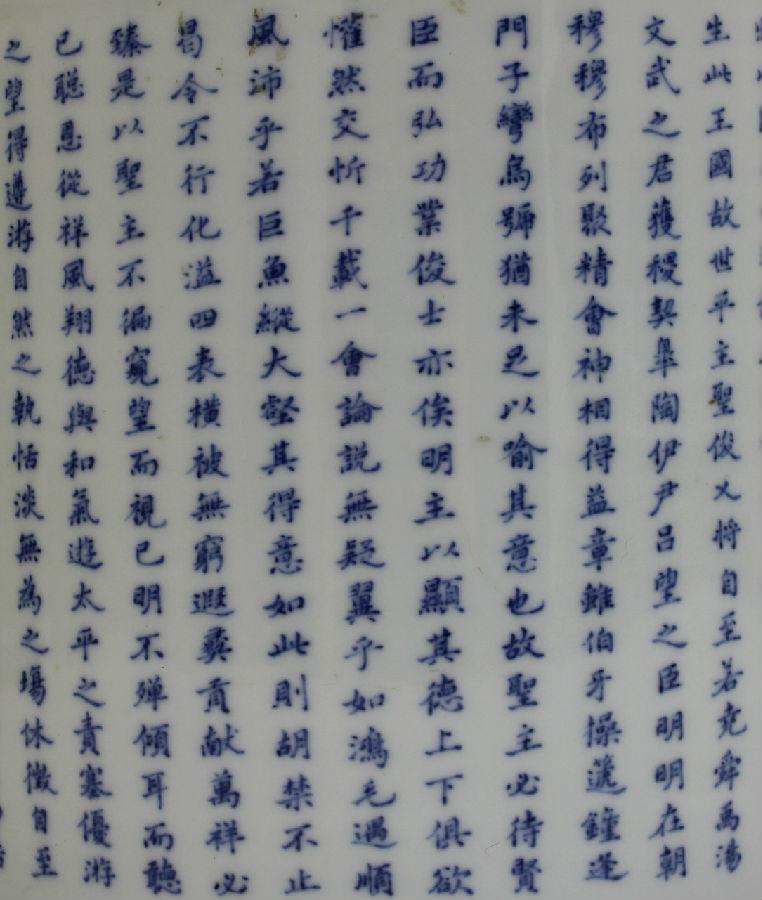 生此王國故世平主聖俊乂将自至若尭舜禹湯
文武之君獲稷契臯陶伊尹呂望之臣明明在朝
穆穆布列聚精會神相得益章雖伯牙操遞鐘逢
門子彎烏號猶未足以喻其意也故聖主必待賢
臣而弘功業俊士亦俟明主以顯其德上下俱欲
懽然交忻千載一會論説無疑翼乎如鴻毛遇順
風沛乎若巨魚縱大壑其得意如此則胡禁不止
曷令不行化溢四表横被無窮遐彞貢献萬祥必
臻是以聖主不徧窺望而視已明不殫傾耳而聽
已聡恩從祥風翔德與和氣遊太平之責塞優游
之望得遵游自然之執恬淡無為之塲休徴自至